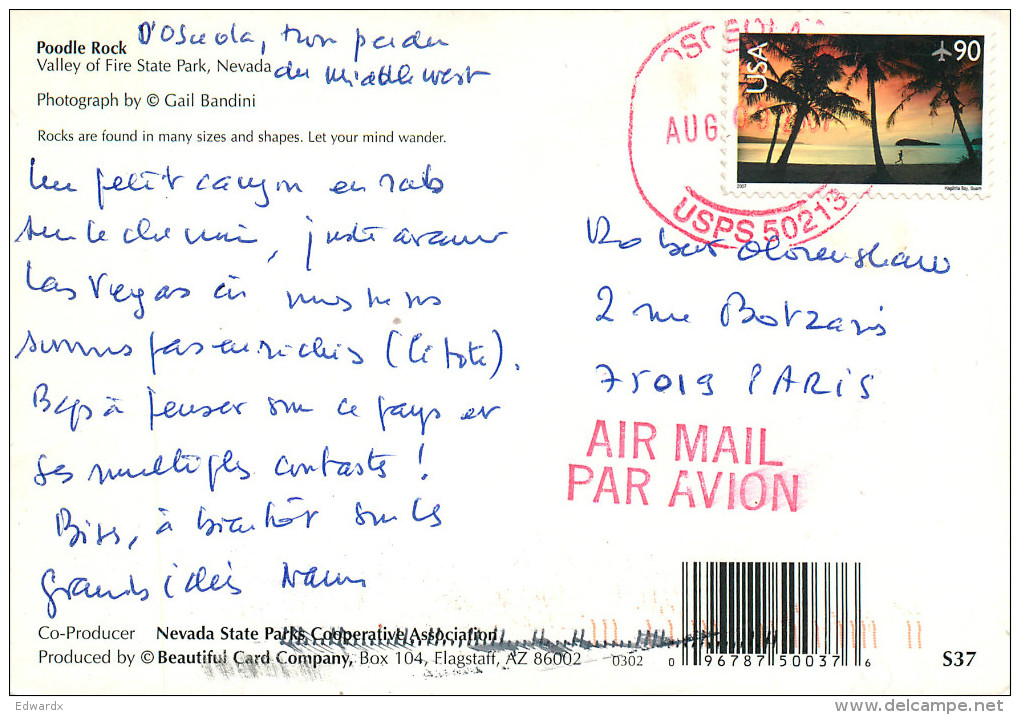 D'Osceola, trou perdu
du middle west
Poodle Rock
Valley of Fire State Park, Nevada
Photograph by © Gail Bandini
Rocks are found in many sizes and shapes. Let your mind wander.
Un petit canyon en
sur le chemin, juste avant
Las Vegas où nous ne nous
sommes pas enrichis (litote).
Bcp à penser sur ce pays et
ses multiples contrastes!
Bises, à bientôt sur les
grands
USA
90
2007
Hagåtña Bay, Guam
OSCEOLA
AUG
USPS 50213
Robert
2 rue Botzaris
75019 PARIS
AIR MAIL
PAR AVION
Co-Producer Nevada State Parks Cooperative Association
Produced by © Beautiful Card Company, Box 104, Flagstaff, AZ 86002
0302
0 96787 50037 6
S37
Edwardx
delcampe.net